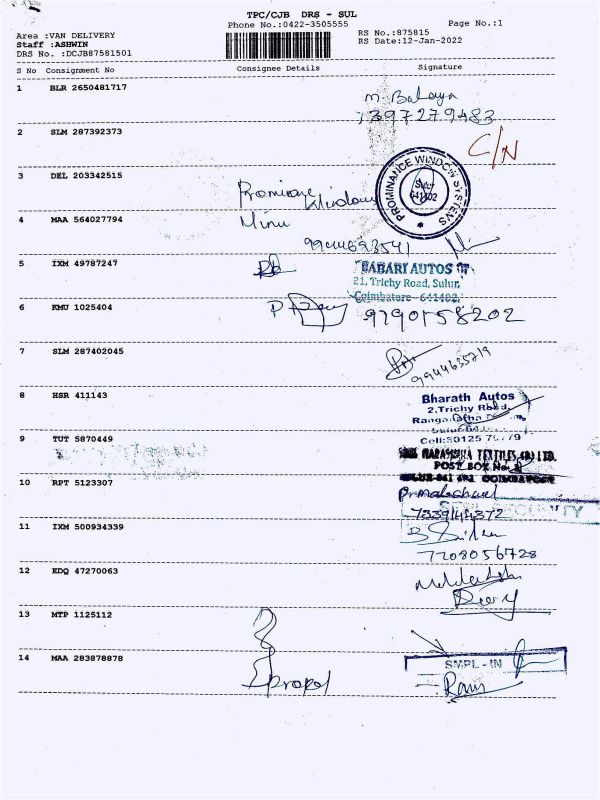 TPC/CJB DRS - SUL
Phone No.:0422-3505555
Page No.:1
Area :VAN DELIVERY
Staff :ASHWIN
DRS No. :DCJB87581501
RS No.:875815
RS Date:12-Jan-2022
S No Consignment No Consignee Details Signature
1 BLR 2650481717
M. Balaya
7397279483
2 SLM 287392373
C/N
3 DEL 203342515
PROMINANCE WINDOW SYSTEMS
Sulur
641402
Prominance Windows
4 MAA 564027794 Minu
9944693541
5 IXM 49787247
BABARI AUTOS
21, Trichy Road, Sulur,
Coimbatore - 641402.
6 KMU 1025404
9790158202
7 SLM 287402045
9944635719
8 HSR 411143
Bharath Autos
2,Trichy Road,
9 TUT 5870449
TEXTILES (P) LTD.
POST BOX No.
COIMBATORE
10 RPT 5123307
7339144372
SECURITY
11 IXM 500934339
7708056728
12 EDQ 47270063
13 MTP 1125112
14 MAA 283878878
SMPL - IN
Ram